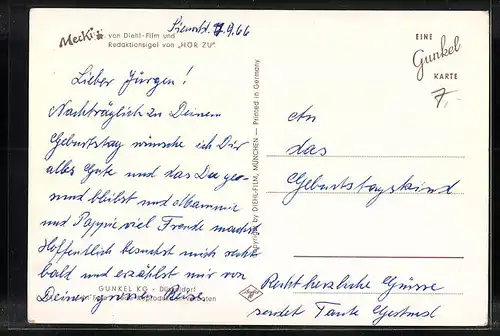 Mecki von Diehl-Film und
Redaktionsigel von „HÖR ZU"
7.9.66
Lieber Jürgen!
Nachträglich zu Deinem
Geburtstag wünsche ich Dir
alles Gute und das Du ge-
sund bleibst und Mammie
und Pappie viel Freude machst
Hoffentlich besuchst mich recht
bald und erzählst mir von
Deiner grossen Reise
GUNKEL KG - Düsseldorf
Copyright by DIEHL-FILM, MÜNCHEN — Printed in Germany
EINE
Gunkel
KARTE
7,-
An
das
Geburtstagskind
Recht herzliche Grüsse
sendet Tante Gertrud